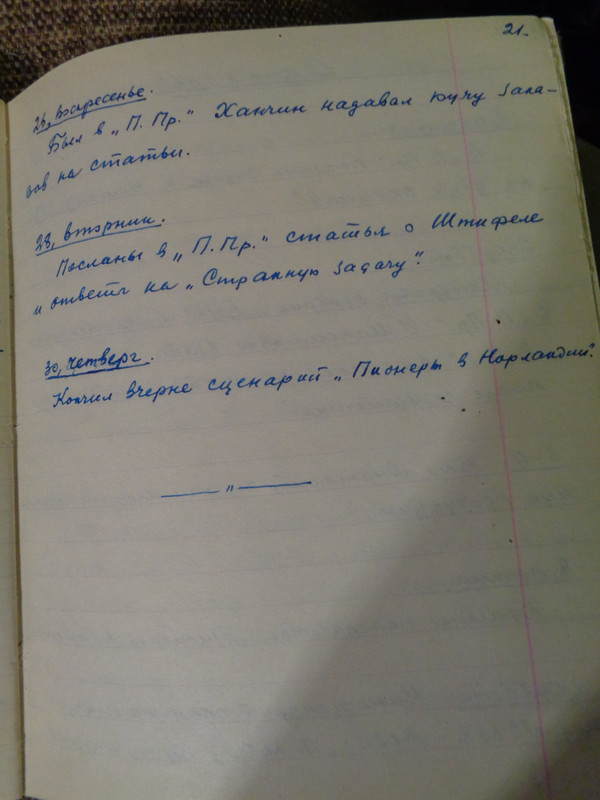 21.
26, воскресенье.
Был в „П. Пр." Ханчин надавал кучу зака-
зов на статьи.
28, вторник.
Посланы в „П. Пр." статья о Штифеле
и ответы на „Странную задачу".
30, четверг.
Кончил вчерне сценарий „Пионеры в Норландии".
— „ —